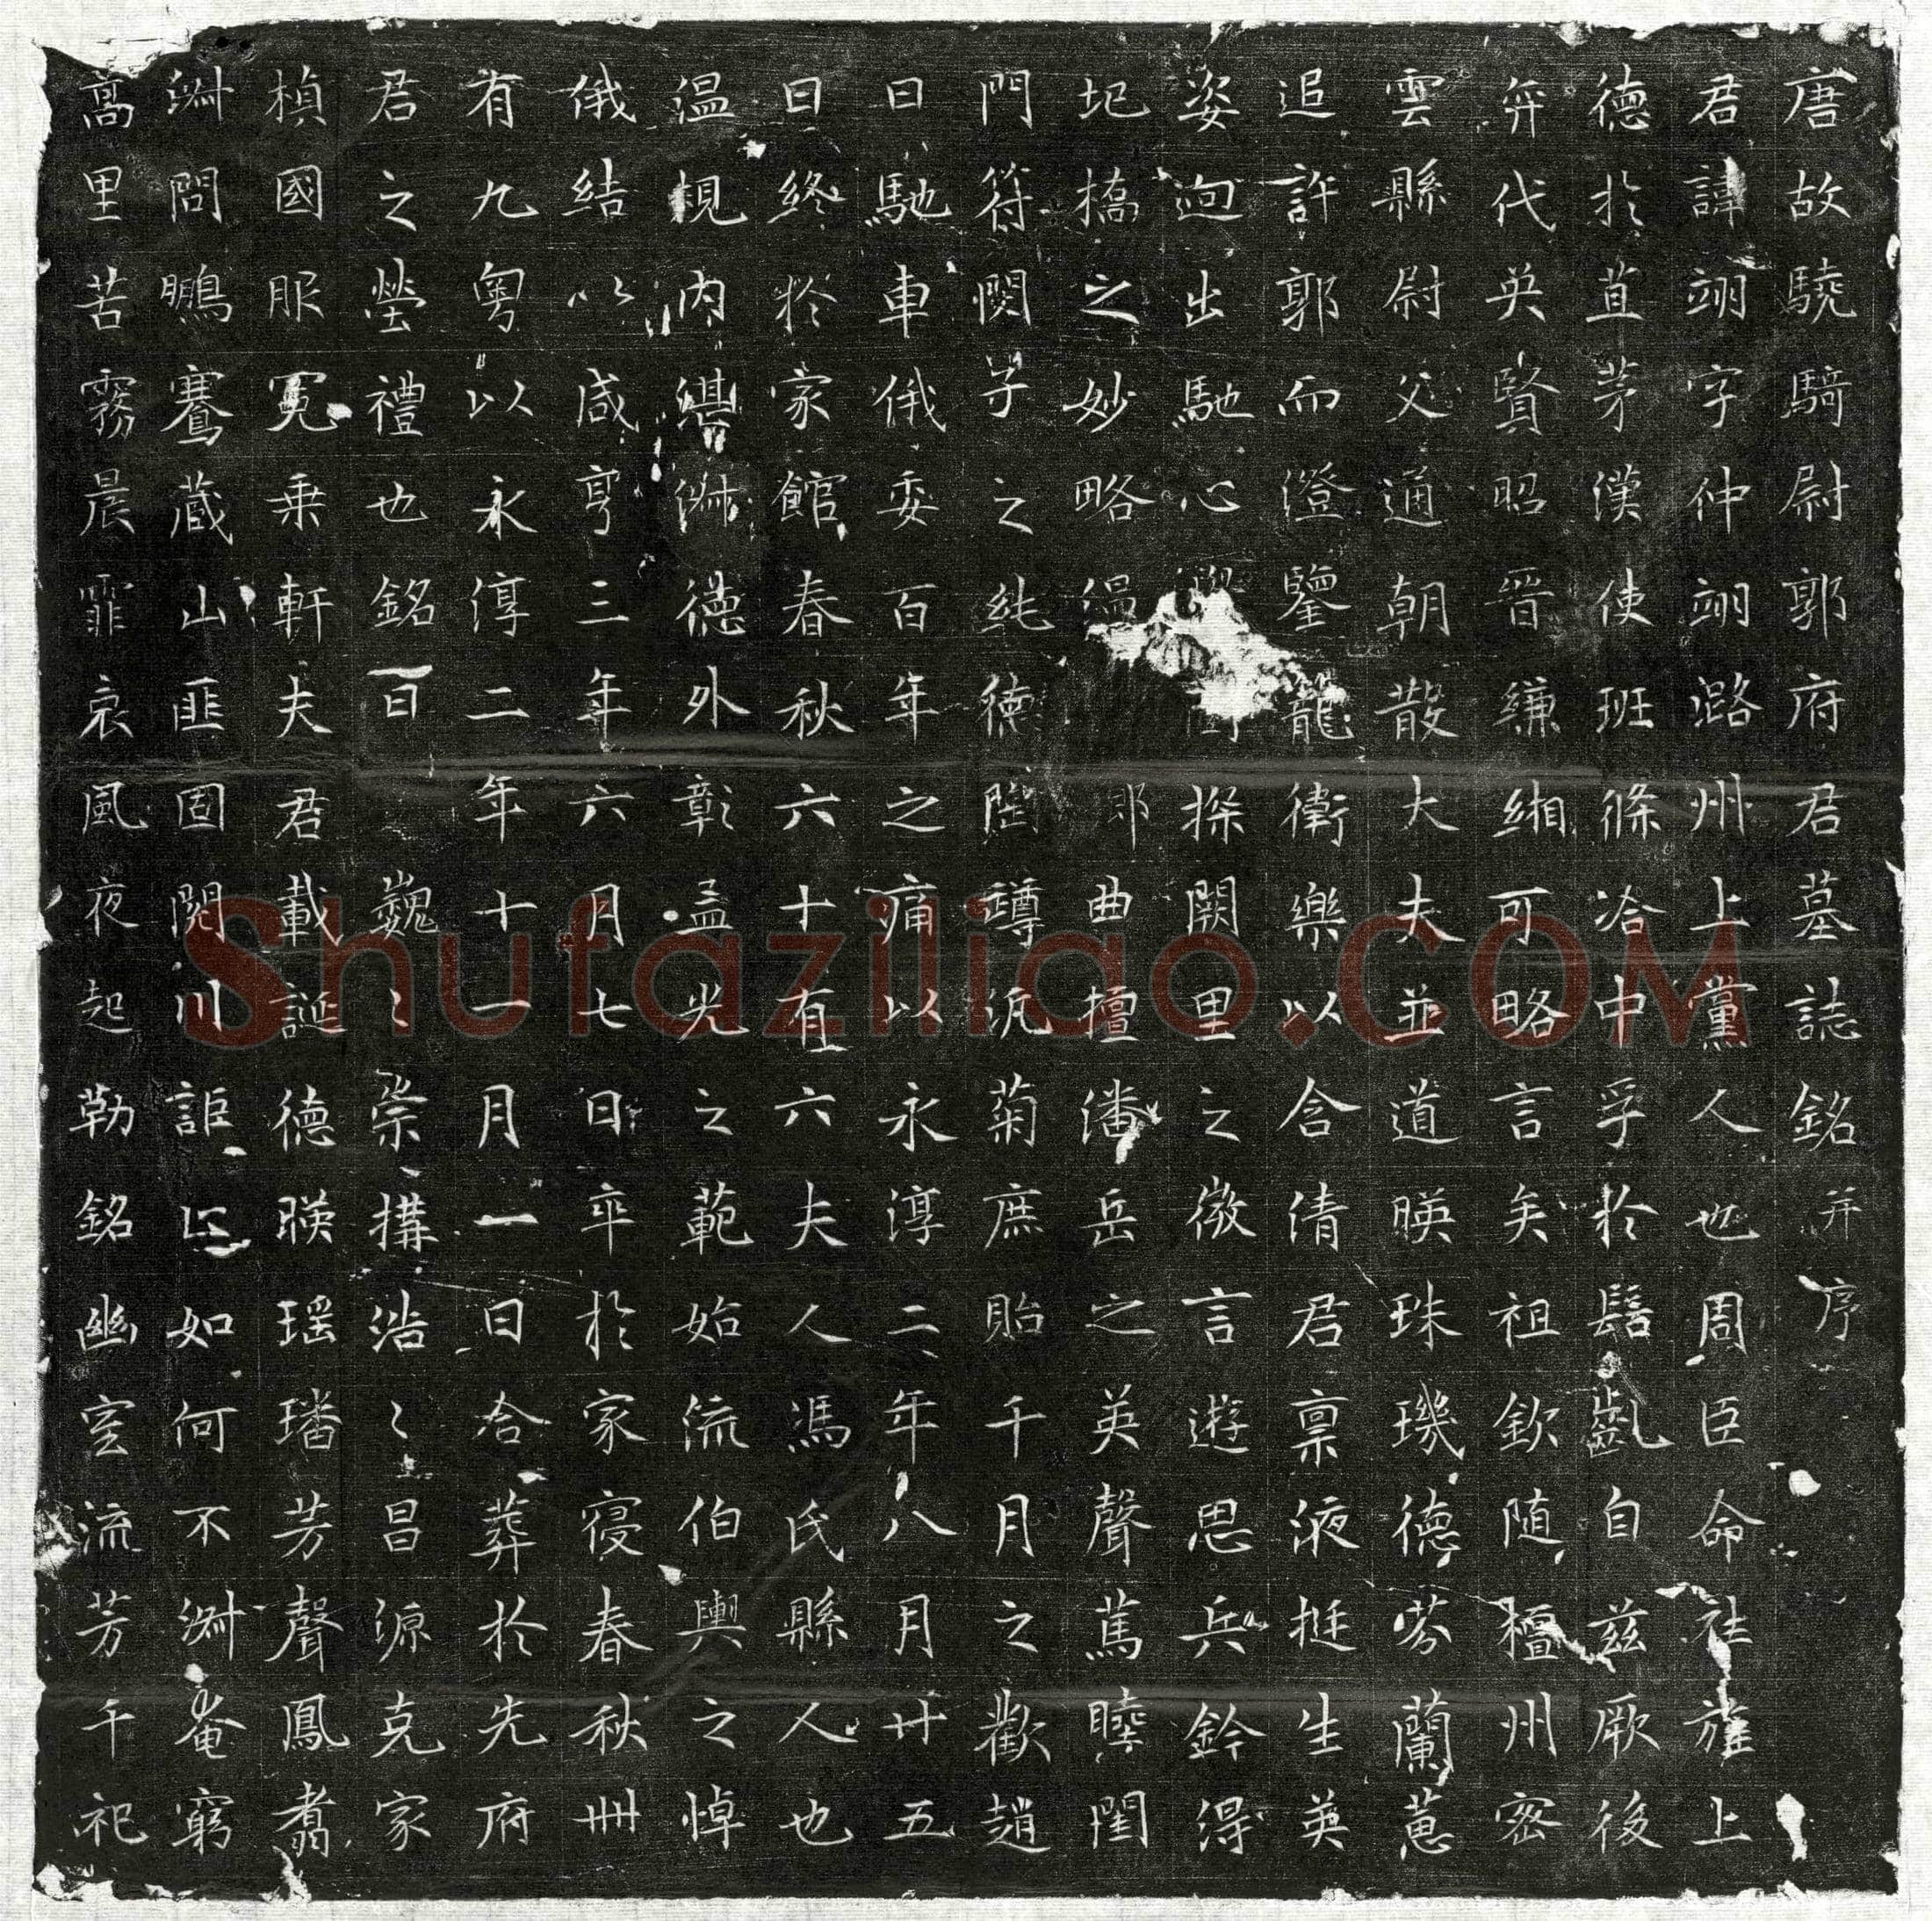 唐故驍騎尉郭府君墓誌銘并序
君諱翊字仲翊潞州上黨人也周臣命社旌上
德於苴茅漢使班條洽中孚於髫齓自茲厥後
弈代英賢昭晉縑緗可略言矣祖欽随檀州密
雲縣尉父通朝散大夫並道暎珠璣德芬蘭蕙
追許郭而澄鑒龍衛樂以含清君禀液挺生英
姿迥出馳心探闕里之微言遊思兵鈐得
圯橋之妙略温郎曲檀潘岳之英聲篤睦閨
門符閔子之純德陶罇汎菊庶貽千月之歡趙
日馳車俄委百年之痛以永淳二年八月廿五
日終於家館春秋六十有六夫人馮氏縣人也
温規内湛淋德外彰孟光之範始流伯輿之悼
俄結以咸亨三年六月七日卒於家寝春秋卌
有九粤以永淳二年十一月一日合葬於先府
君之塋禮也銘曰巍〻崇搆浩〻昌源克家
楨國服冕乗軒夫君載誕德暎瑶璠芳聲鳳翥
渊問鵬騫蔵山匪固閱川詎止如何不渊奄窮
蒿里苦霧晨霏哀風夜起勒銘幽室流芳千祀
Shufaziliao.COM